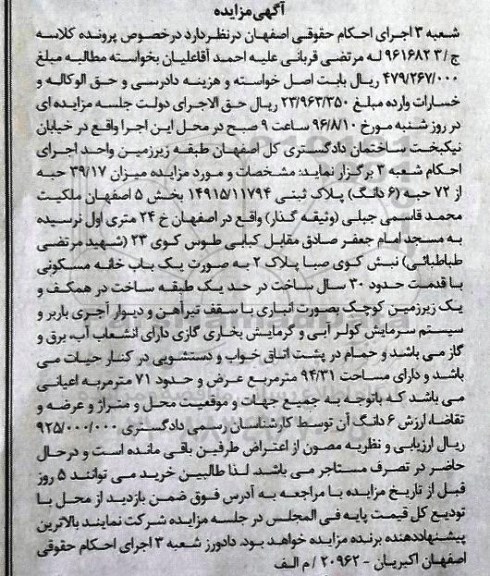 آگهی مزایده
شعبه ۳ اجرای احکام حقوقی اصفهان در نظر دارد در خصوص پرونده کلاسه
ج/۳ ۹۶۱۶۸۲ له مرتضی قربانی علیه احمد آقاعلیان بخواسته مطالبه مبلغ
۴۷۹/۲۶۷/۰۰۰ ریال بابت اصل خواسته و هزینه دادرسی و حق الوکاله و
خسارات وارده مبلغ ۲۳/۹۶۳/۳۵۰ ریال حق الاجرای دولت جلسه مزایده ای
در روز شنبه مورخ ۹۶/۸/۱۰ ساعت ۹ صبح در محل این اجرا واقع در خیابان
نیکبخت ساختمان دادگستری کل اصفهان طبقه زیرزمین واحد اجرای
احکام شعبه ۳ برگزار نماید: مشخصات و مورد مزایده میزان ۳۹/۱۷ حبه
از ۷۲ حبه (۶ دانگ) پلاک ثبتی ۱۴۹۱۵/۱۱۷۹۴ بخش ۵ اصفهان ملکیت
محمد قاسمی جبلی (وثیقه گذار) واقع در اصفهان خ ۲۴ متری اول نرسیده
به مسجد امام جعفر صادق مقابل کبابی طوس کوی ۲۳ (شهید مرتضی
طباطبائی) نبش کوی صبا پلاک ۲ به صورت یک باب خانه مسکونی
با قدمت حدود ۳۰ سال ساخت در حد یک طبقه ساخت در همکف و
یک زیرزمین کوچک بصورت انباری با سقف تیرآهن و دیوار آجری باربر و
سیستم سرمایش کولر آبی و گرمایش بخاری گازی دارای انشعاب آب، برق و
گاز می باشد و حمام در پشت اتاق خواب و دستشویی در کنار حیات می
باشد و دارای مساحت ۹۴/۳۱ مترمربع عرض و حدود ۷۱ مترمربه اعیانی
می باشد که باتوجه به جمیع جهات و موقعیت محل و متراژ و عرضه و
تقاضا، ارزش ۶ دانگ آن توسط کارشناسان رسمی دادگستری ۹۲۵/۰۰۰/۰۰۰
ریال ارزیابی و نظریه مصون از اعتراض طرفین باقی مانده است و درحال
حاضر در تصرف مستاجر می باشد. لذا طالبین خرید می توانند ۵ روز
قبل از تاریخ مزایده با مراجعه به آدرس فوق ضمن بازدید از محل با
تودیع کل قیمت پایه فی المجلس در جلسه مزایده شرکت نمایند بالاترین
پیشنهاددهنده برنده مزایده خواهد بود. دادورز شعبه ۳ اجرای احکام حقوقی
اصفهان اکبریان - ۲۰۹۶۲ / م الف